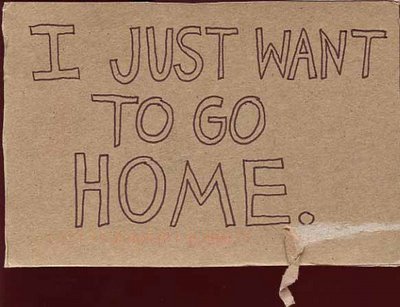 I JUST WANT
TO GO
HOME.